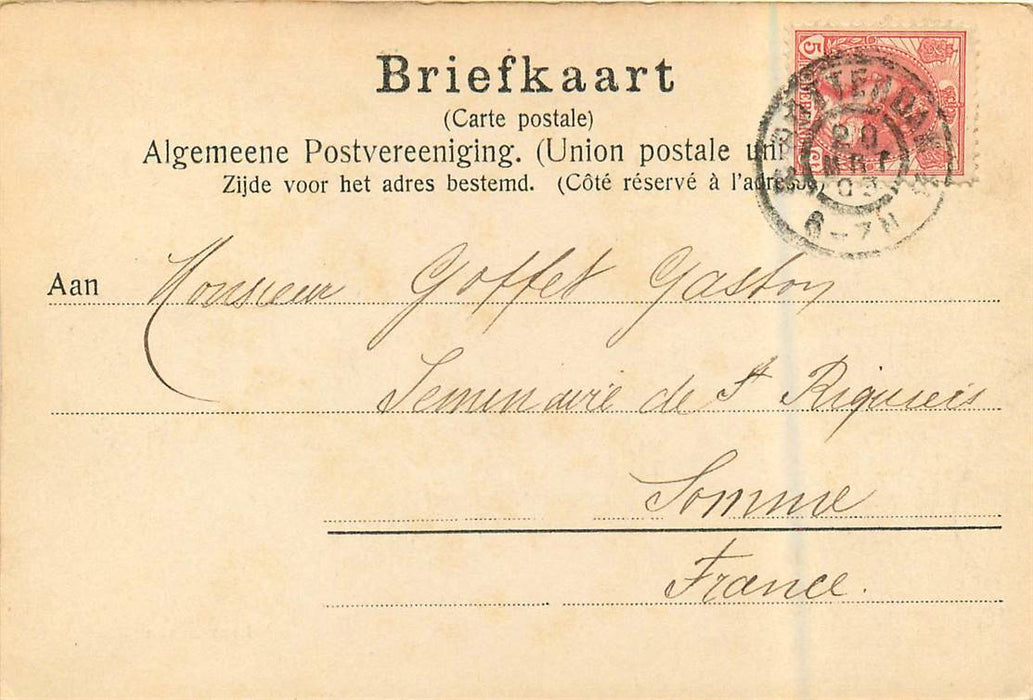 Briefkaart
(Carte postale)
Algemeene Postvereeniging. (Union postale uni
Zijde voor het adres bestemd. (Côté réservé à l'adresse)
5
20
MRT
03
6-7N
Aan Monsieur Goffet Gaston
Seminaire de St Riquieis
Somme
France.